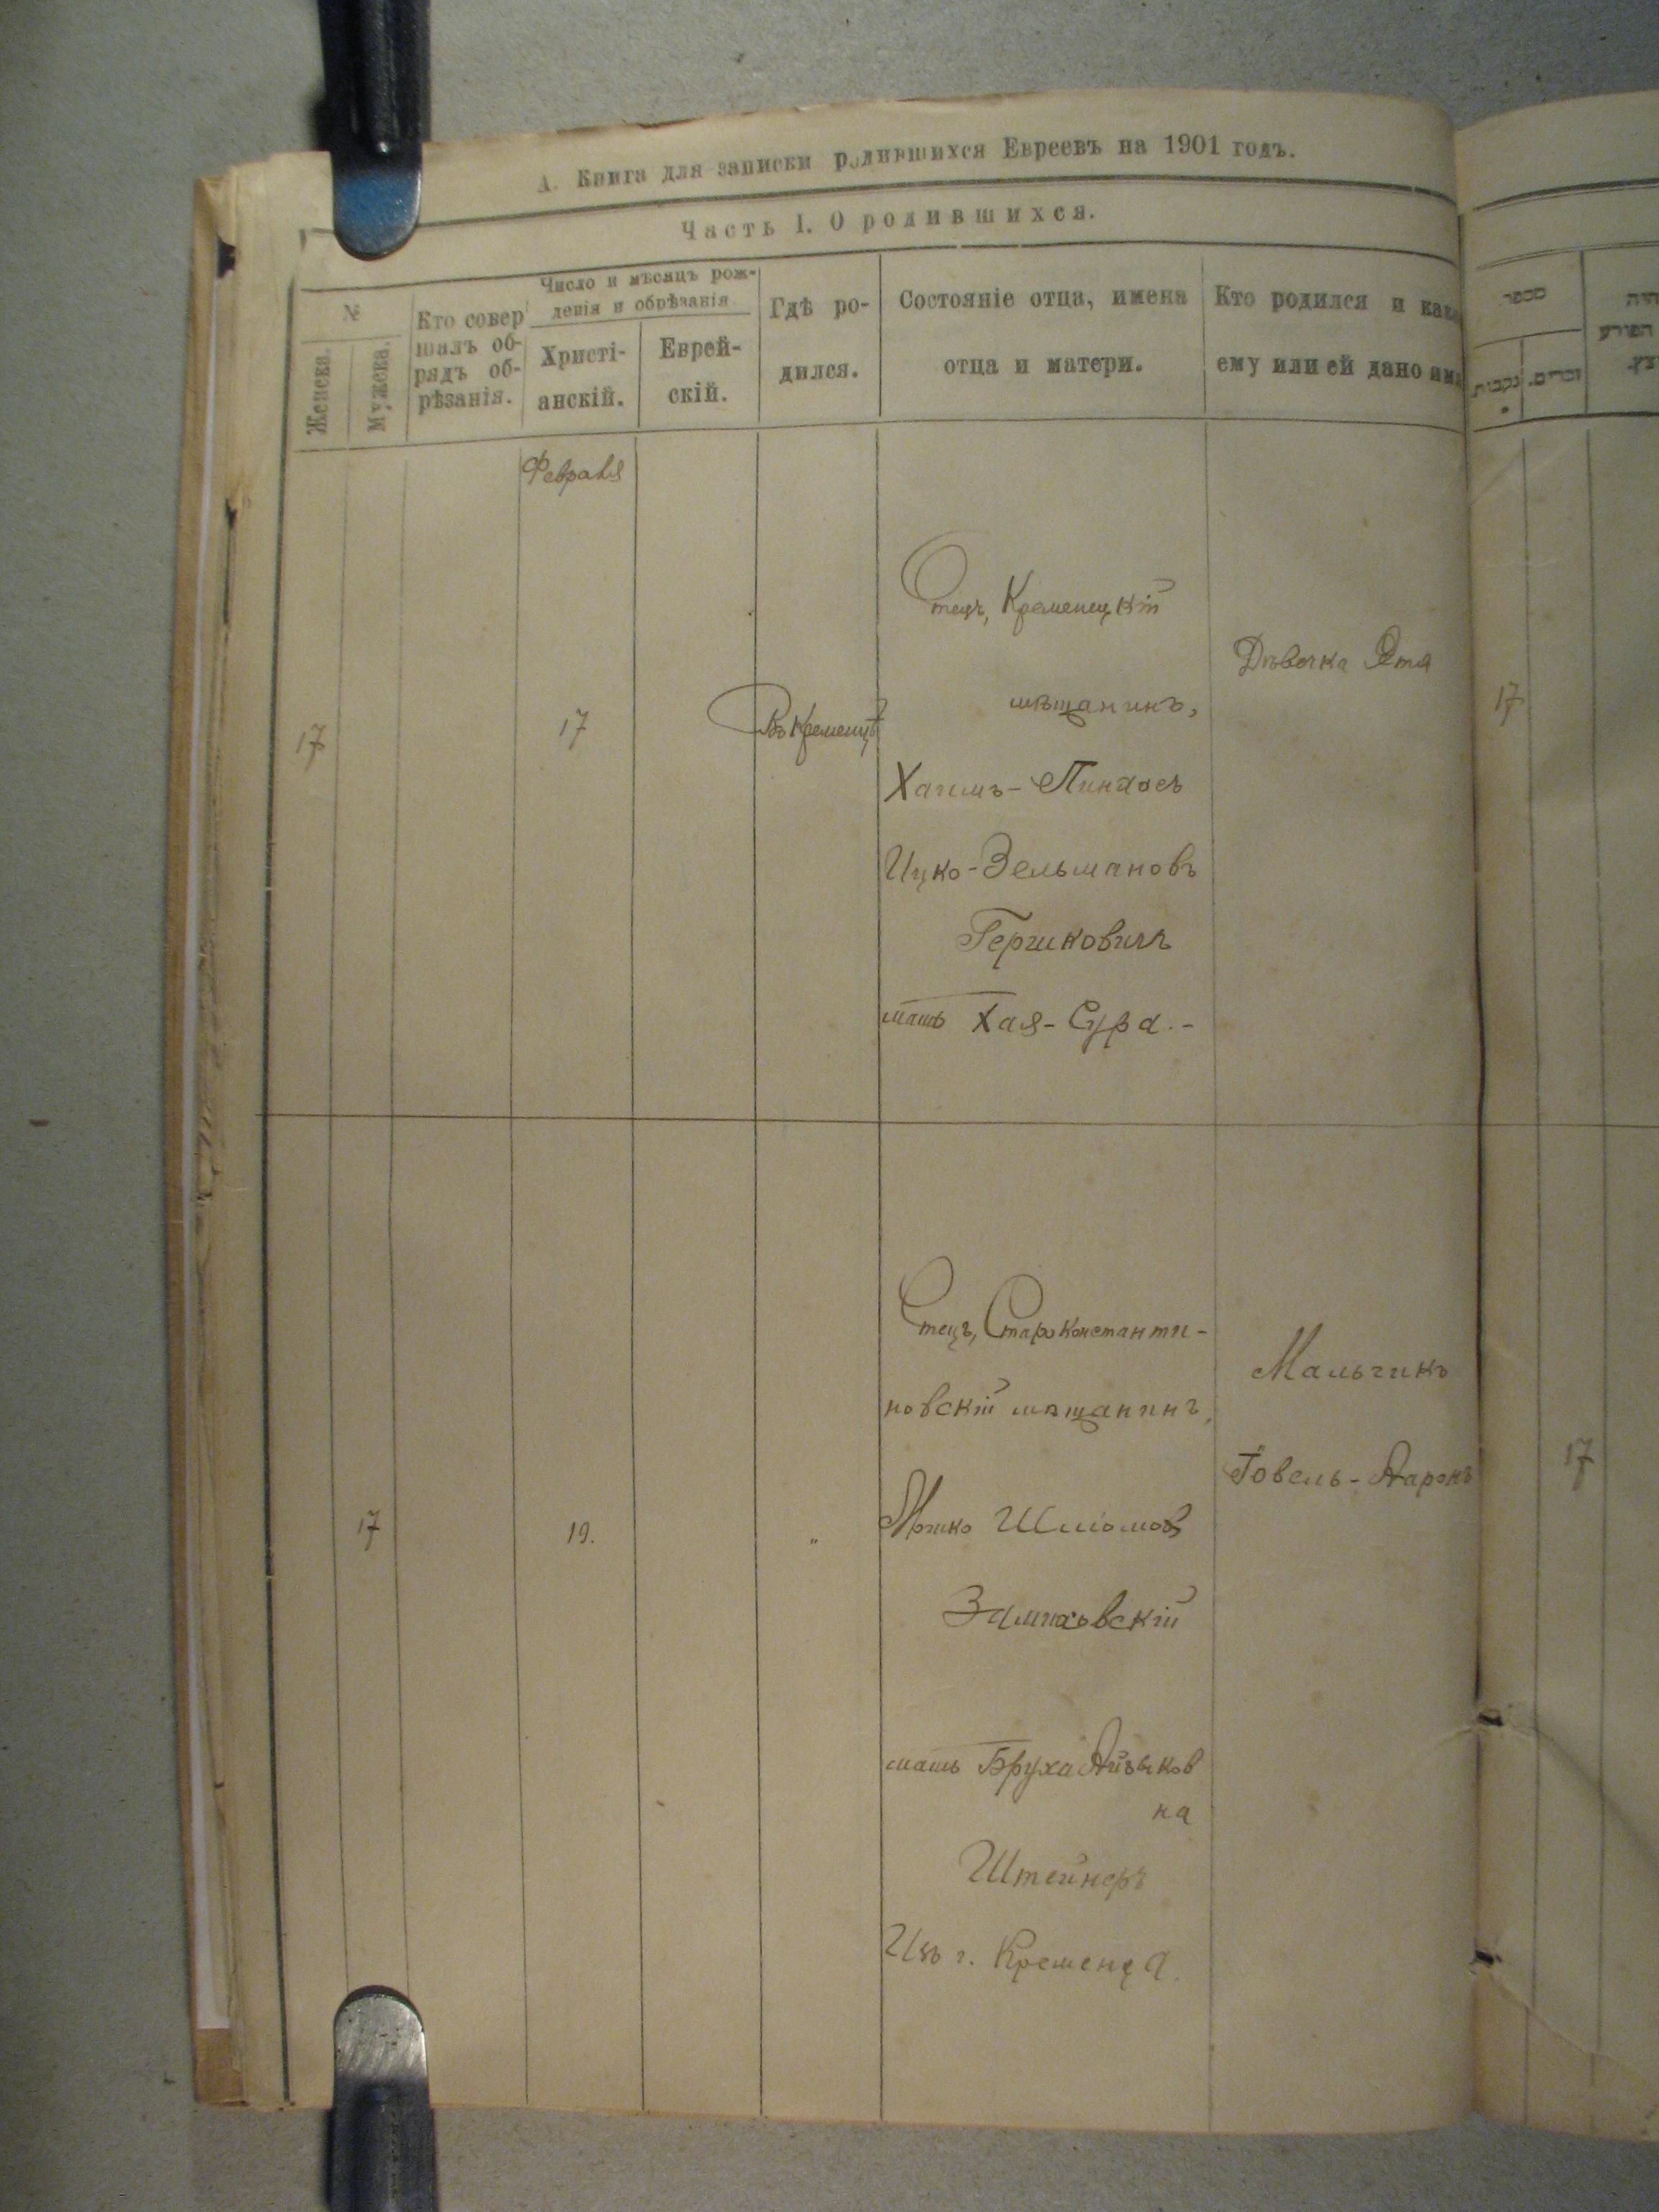 А. Книга для записки родившихся Евреевъ на 1901 годъ.
Часть I. О родившихся.
№
Женска.
Мужска.
Кто совер
шалъ об-
рядъ об-
рѣзанія.
Число и мѣсяцъ рож-
денія и обрѣзанія
Христі-
анскій.
Еврей-
скій.
Гдѣ ро-
дился.
Состояніе отца, имена
отца и матери.
Кто родился и како
ему или ей дано имя
מספר
נקבות
זכרים.
Февраля
17
17
Въ Кременцѣ
Отецъ, Кременецкій
мѣщанинъ,
Хаимъ-Пинхосъ
Ицко-Зельмановъ
Гершковичъ
мать Хая-Сура.-
Дѣвочка Этя
17
17
19.
"
Отецъ, Староконстанти-
новскій мѣщанинъ,
Мошко Шліомов
Залиховскій
мать Бруха Айзиков
на
Штейнеръ
Изъ г. Кременца.
Мальчикъ
Говель-Ааронъ
17